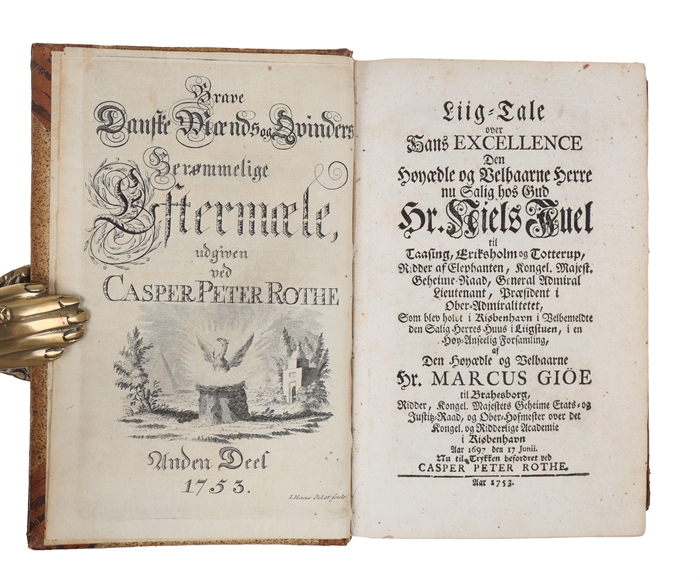 Brave
Danske Mænds og Qvinders
Berømmelige
Eftermæle,
udgiven
ved
CASPER PETER ROTHE
Anden Deel
1753.
I. Haas del et sculp
Liig-Tale
over
Hans EXCELLENCE
Den
Høyædle og Velbaarne Herre
nu Salig hos Gud
Hr. Niels Juel
til
Taasing, Eriksholm og Totterup,
Ridder af Elephanten, Kongel. Majest.
Geheime-Raad, General Admiral
Lieutenant, Præsident i
Ober-Admiralitetet,
Som blev holdt i Kiøbenhavn i Velbemeldte
den Salig Herres Huus i Liigstuen, i en
Høy-Anseelig Forsamling,
af
Den Høyædle og Velbaarne
Hr. MARCUS GIÖE
til Brahesborg,
Ridder, Kongel. Majestets Geheime Etats- og
Justitz-Raad, og Ober-Hofmester over det
Kongel. og Ridderlige Academie
i Kiøbenhavn
Aar 1697 den 17 Junii.
Nu til Trykken befordret ved
CASPER PETER ROTHE.
Aar 1753.